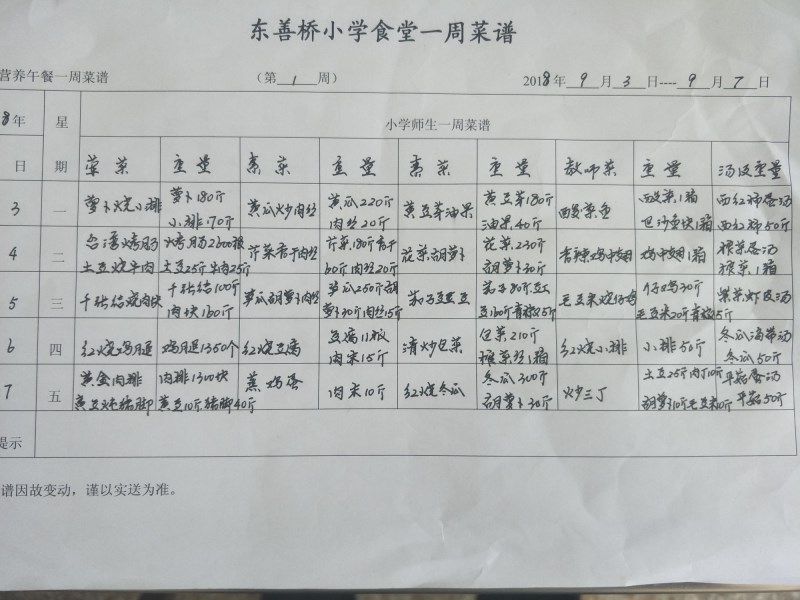 东善桥小学食堂一周菜谱
营养午餐一周菜谱 （第 1 周） 2018年 9 月 3 日----9 月 7 日
8年 星 小学师生一周菜谱
日 期 荤菜 重量 素菜 重量 素菜 重量 教师菜 重量 汤及重量
3 一 萝卜烧小排 萝卜180斤 黄瓜炒肉丝 黄瓜220斤 黄豆芽油果 黄豆芽180斤 酸菜鱼 酸菜1箱 西红柿蛋汤
小排170斤 肉丝20斤 油果40斤 巴沙鱼块1箱 西红柿50斤
4 二 台湾烤肠 烤肠2600根 芹菜香干肉丝 芹菜180斤香干 花菜胡萝卜 花菜230斤 香辣鸡中翅 鸡中翅1箱 榨菜蛋汤
土豆烧牛肉 土豆25斤牛肉25斤 60斤肉丝20斤 胡萝卜30斤 榨菜1箱
5 三 千张结烧肉块 千张结100斤 莴瓜胡萝卜肉丝 莴瓜250斤胡 茄子豇豆 茄子80斤豇 毛豆米烧仔鸡 仔鸡30斤 紫菜虾皮汤
肉块160斤 萝卜30斤肉丝15斤 豆160斤青椒25斤 毛豆米20斤青椒5斤
6 四 红烧鸡腿 鸡腿1350个 红烧豆腐 豆腐11板 清炒包菜 包菜210斤 红烧小排 小排50斤 冬瓜海带汤
肉末15斤 榨菜丝1箱 冬瓜50斤
7 五 黄金肉排 肉排1300块 蒸鸡蛋 肉末10斤 红烧冬瓜 冬瓜300斤 炒三丁 土豆25斤肉丁10斤 平菇蛋汤
黄豆烧猪脚 黄豆10斤猪脚40斤 胡萝卜30斤 胡萝卜10斤毛豆米10斤 平菇50斤
提示
谱因故变动，谨以实送为准。